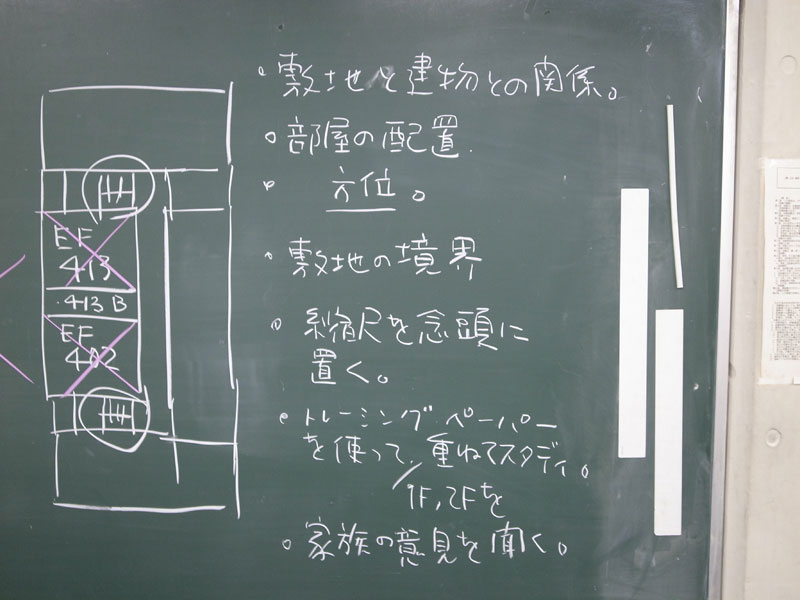 。敷地と建物との関係。
。部屋の配置.
。方位。
。敷地の境界
。縮尺を念頭に
置く。
。トレーシングペーパー
を使って、重ねてスタディ。
1F,2Fを
。家族の意見を聞く。
EF
413
・413 B
EF
402